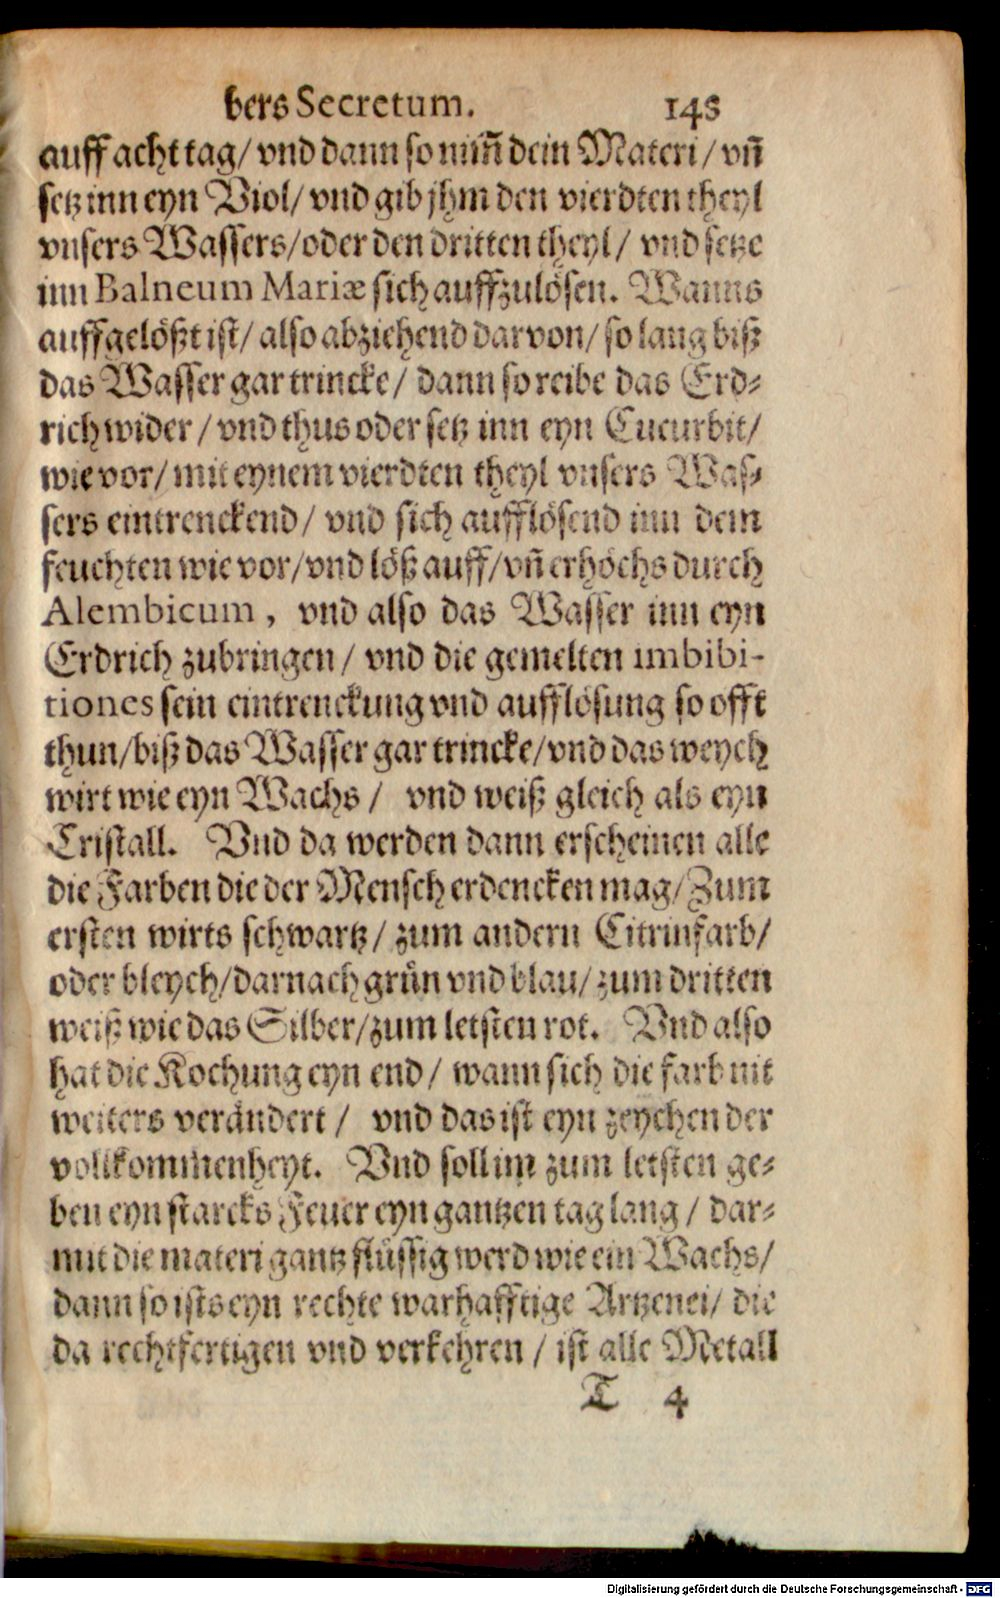 bers Secretum. 148
auff acht tag/ vnd dann so nim̃ dein Materi/ vñ
setz inn eyn Viol/ vnd gib jhm den vierdten theyl
vnsers Wassers/ oder den dritten theyl/ vnd setze
inn Balneum Mariæ sich auffzulösen. Wanns
auffgelößt ist/ also abziehend darvon/ so lang biß
das Wasser gar trincke/ dann so reibe das Erd-
rich wider/ vnd thus oder setz inn eyn Cucurbit/
wie vor/ mit eynem vierdten theyl vnsers Was-
sers eintrenckend/ vnd sich aufflösend inn dem
feuchten wie vor/ vnd löß auff/ vñ erhöchs durch
Alembicum, vnd also das Wasser inn eyn
Erdrich zubringen/ vnd die gemelten imbibi-
tiones sein eintrenckung vnd aufflösung so offt
thun/ biß das Wasser gar trincke/ vnd das weych
wirt wie eyn Wachs/ vnd weiß gleich als eyn
Cristall. Vnd da werden dann erscheinen alle
die Farben die der Mensch erdencken mag/ Zum
ersten wirts schwartz/ zum andern Citrinfarb/
oder bleych/ darnach grün vnd blau/ zum dritten
weiß wie das Silber/ zum letsten rot. Vnd also
hat die Kochung eyn end/ wann sich die farb nit
weiters verändert/ vnd das ist eyn zeychen der
vollkommenheyt. Vnd soll im zum letsten ge-
ben eyn starcks Feuer eyn gantzen tag lang/ dar-
mit die materi gantz flüssig werd wie ein Wachs/
dann so ists eyn rechte warhafftige Artzenei/ die
da rechtfertigen vnd verkehren/ ist alle Metall
T 4
Digitalisierung gefördert durch die Deutsche Forschungsgemeinschaft - DFG